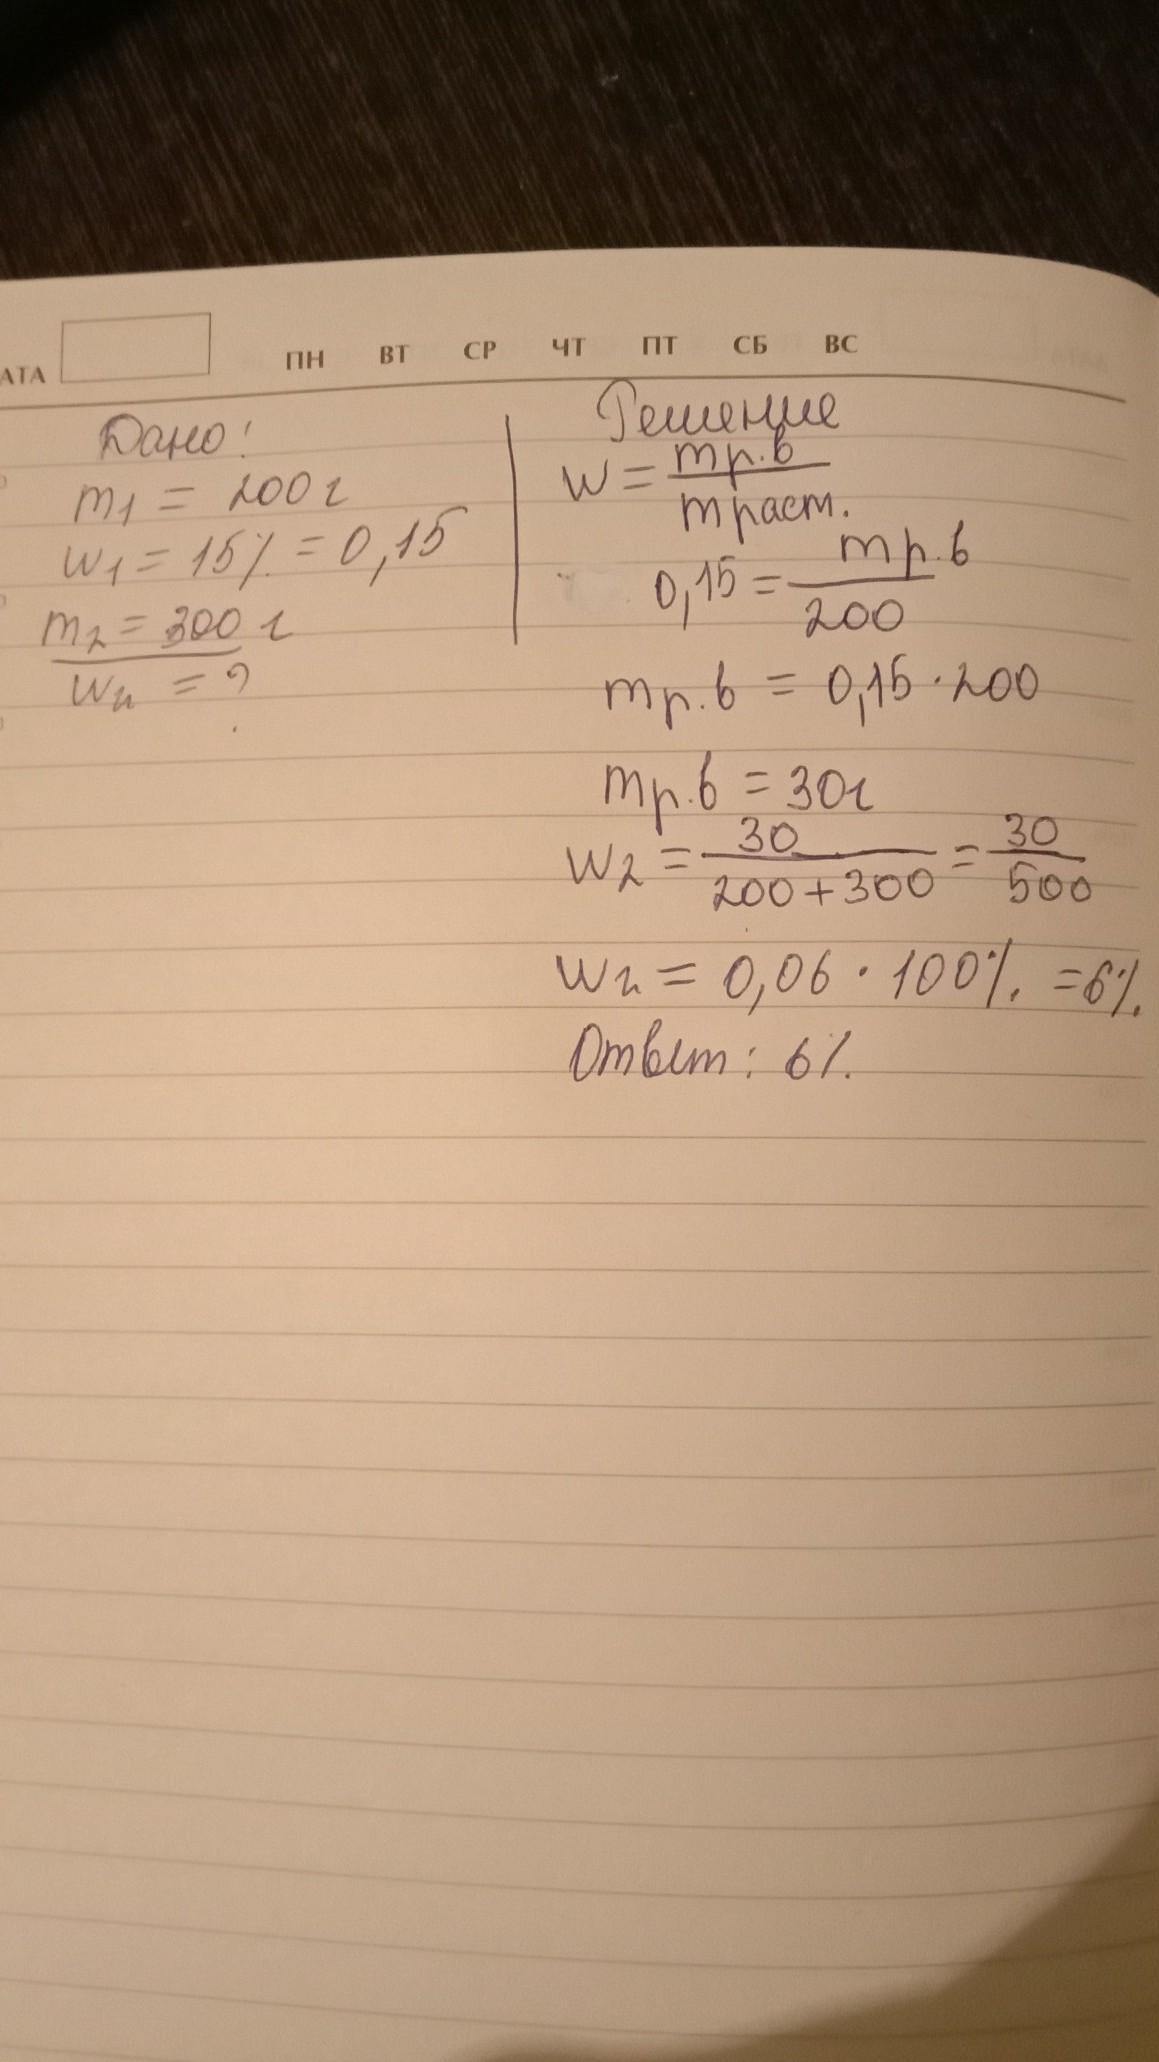 АТА ПН ВТ СР ЧТ ПТ СБ ВС
Дано:
m1 = 200 г
w1 = 15% = 0,15
m2 = 300 г
w2 = ?
Решение
w = mр.в / mраст.
0,15 = mр.в / 200
mр.в = 0,15 · 200
mр.в = 30г
w2 = 30 / 200+300 = 30 / 500
w2 = 0,06 · 100% = 6%
Ответ: 6%.